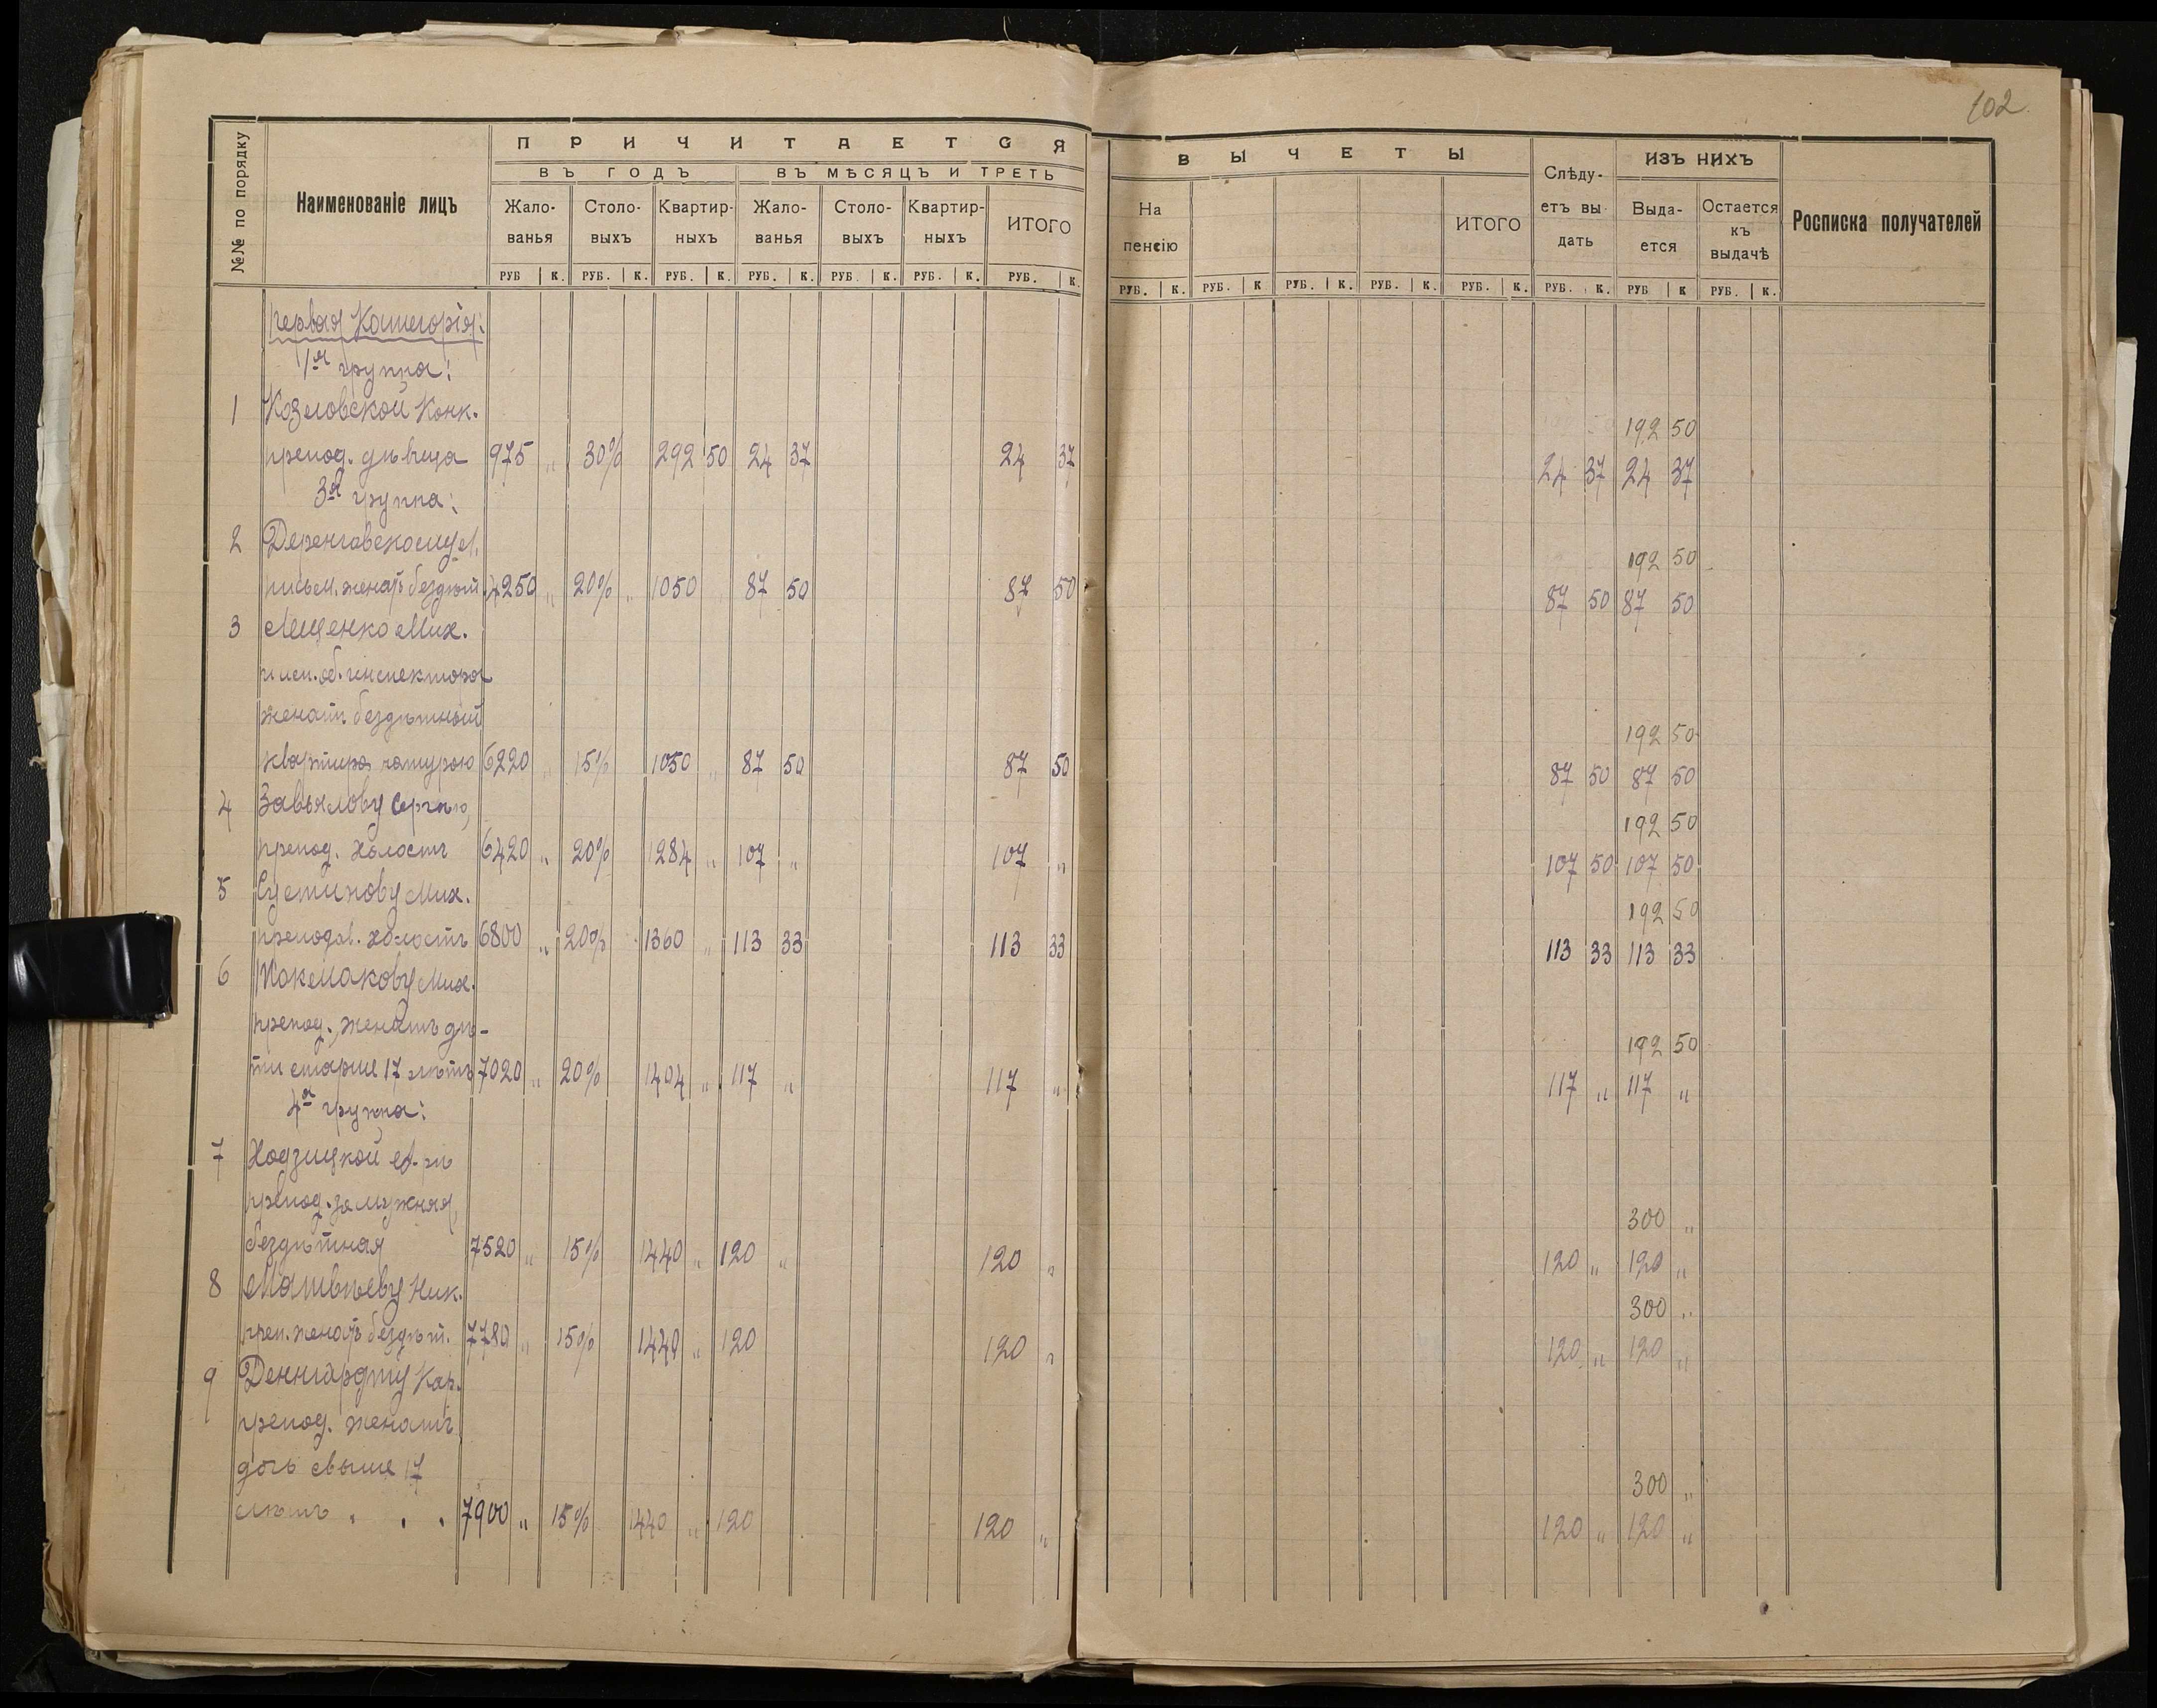 102
№№ по порядку
Наименованіе лицъ
ПРИЧИТАЕТСЯ
ВЪ ГОДЪ
ВЪ МѢСЯЦЪ И ТРЕТЬ
Жало-
ванья
Столо-
выхъ
Квартир-
ныхъ
Жало-
ванья
Столо-
выхъ
Квартир-
ныхъ
ИТОГО
РУБ К. РУБ. К. РУБ. К. РУБ. К. РУБ. К. РУБ. К. РУБ. К
ВЫЧЕТЫ
На
пенсію
ИТОГО
Слѣду-
етъ вы-
дать
ИЗЪ НИХЪ
Выда-
ется
Остается
къ
выдачѣ
Росписка получателей
РУБ. К. РУБ. К РУБ. К. РУБ. К. РУБ. К. РУБ. К. РУБ К РУБ. К.
первая Категорія:
1ая группа:
1 Козловской Конк.
192 50
препод. дѣвица 975 „ 30% 292 50 24 37 24 37 24 37 24 37
3я группа:
2
192 50
письм. женатъ бездѣт. 4250 „ 20% „ 1050 „ 87 50 87 50 87 50 87 50
3 Лещенко Мих.
исп. об. инспектора
женат. бездѣтный
192 50
квартира натурою 6220 „ 15% 1050 „ 87 50 87 50 87 50 87 50
4 Завьялову Сергѣю,
192 50
препод. холостъ 6420 „ 20% 1284 „ 107 „ 107 „ 107 50 107 50
5 Мих.
192 50
преподав. холостъ 6800 „ 20% 1360 „ 113 33 113 33 113 33 113 33
6 Токмакову Мих.
препод., женатъ дѣ-
192 50
ти старше 17 лѣтъ 7020 „ 20% 1404 „ 117 „ 117 „ 117 „ 117 „
4я группа:
7 Ходзицкой
препод. замужняя,
300 „
бездѣтная 7520 „ 15% 1440 „ 120 „ 120 „ 120 „ 120 „
8 Матвѣеву Ник.
300 „
преп. женатъ бездѣт. 7780 „ 15% 1440 „ 120 120 „ 120 „ 120 „
9 Деннгардту Кар.
препод. женатъ
дочь свыше 17
300 „
лѣтъ . . . 7900 „ 15% 1440 „ 120 120 „ 120 „ 120 „